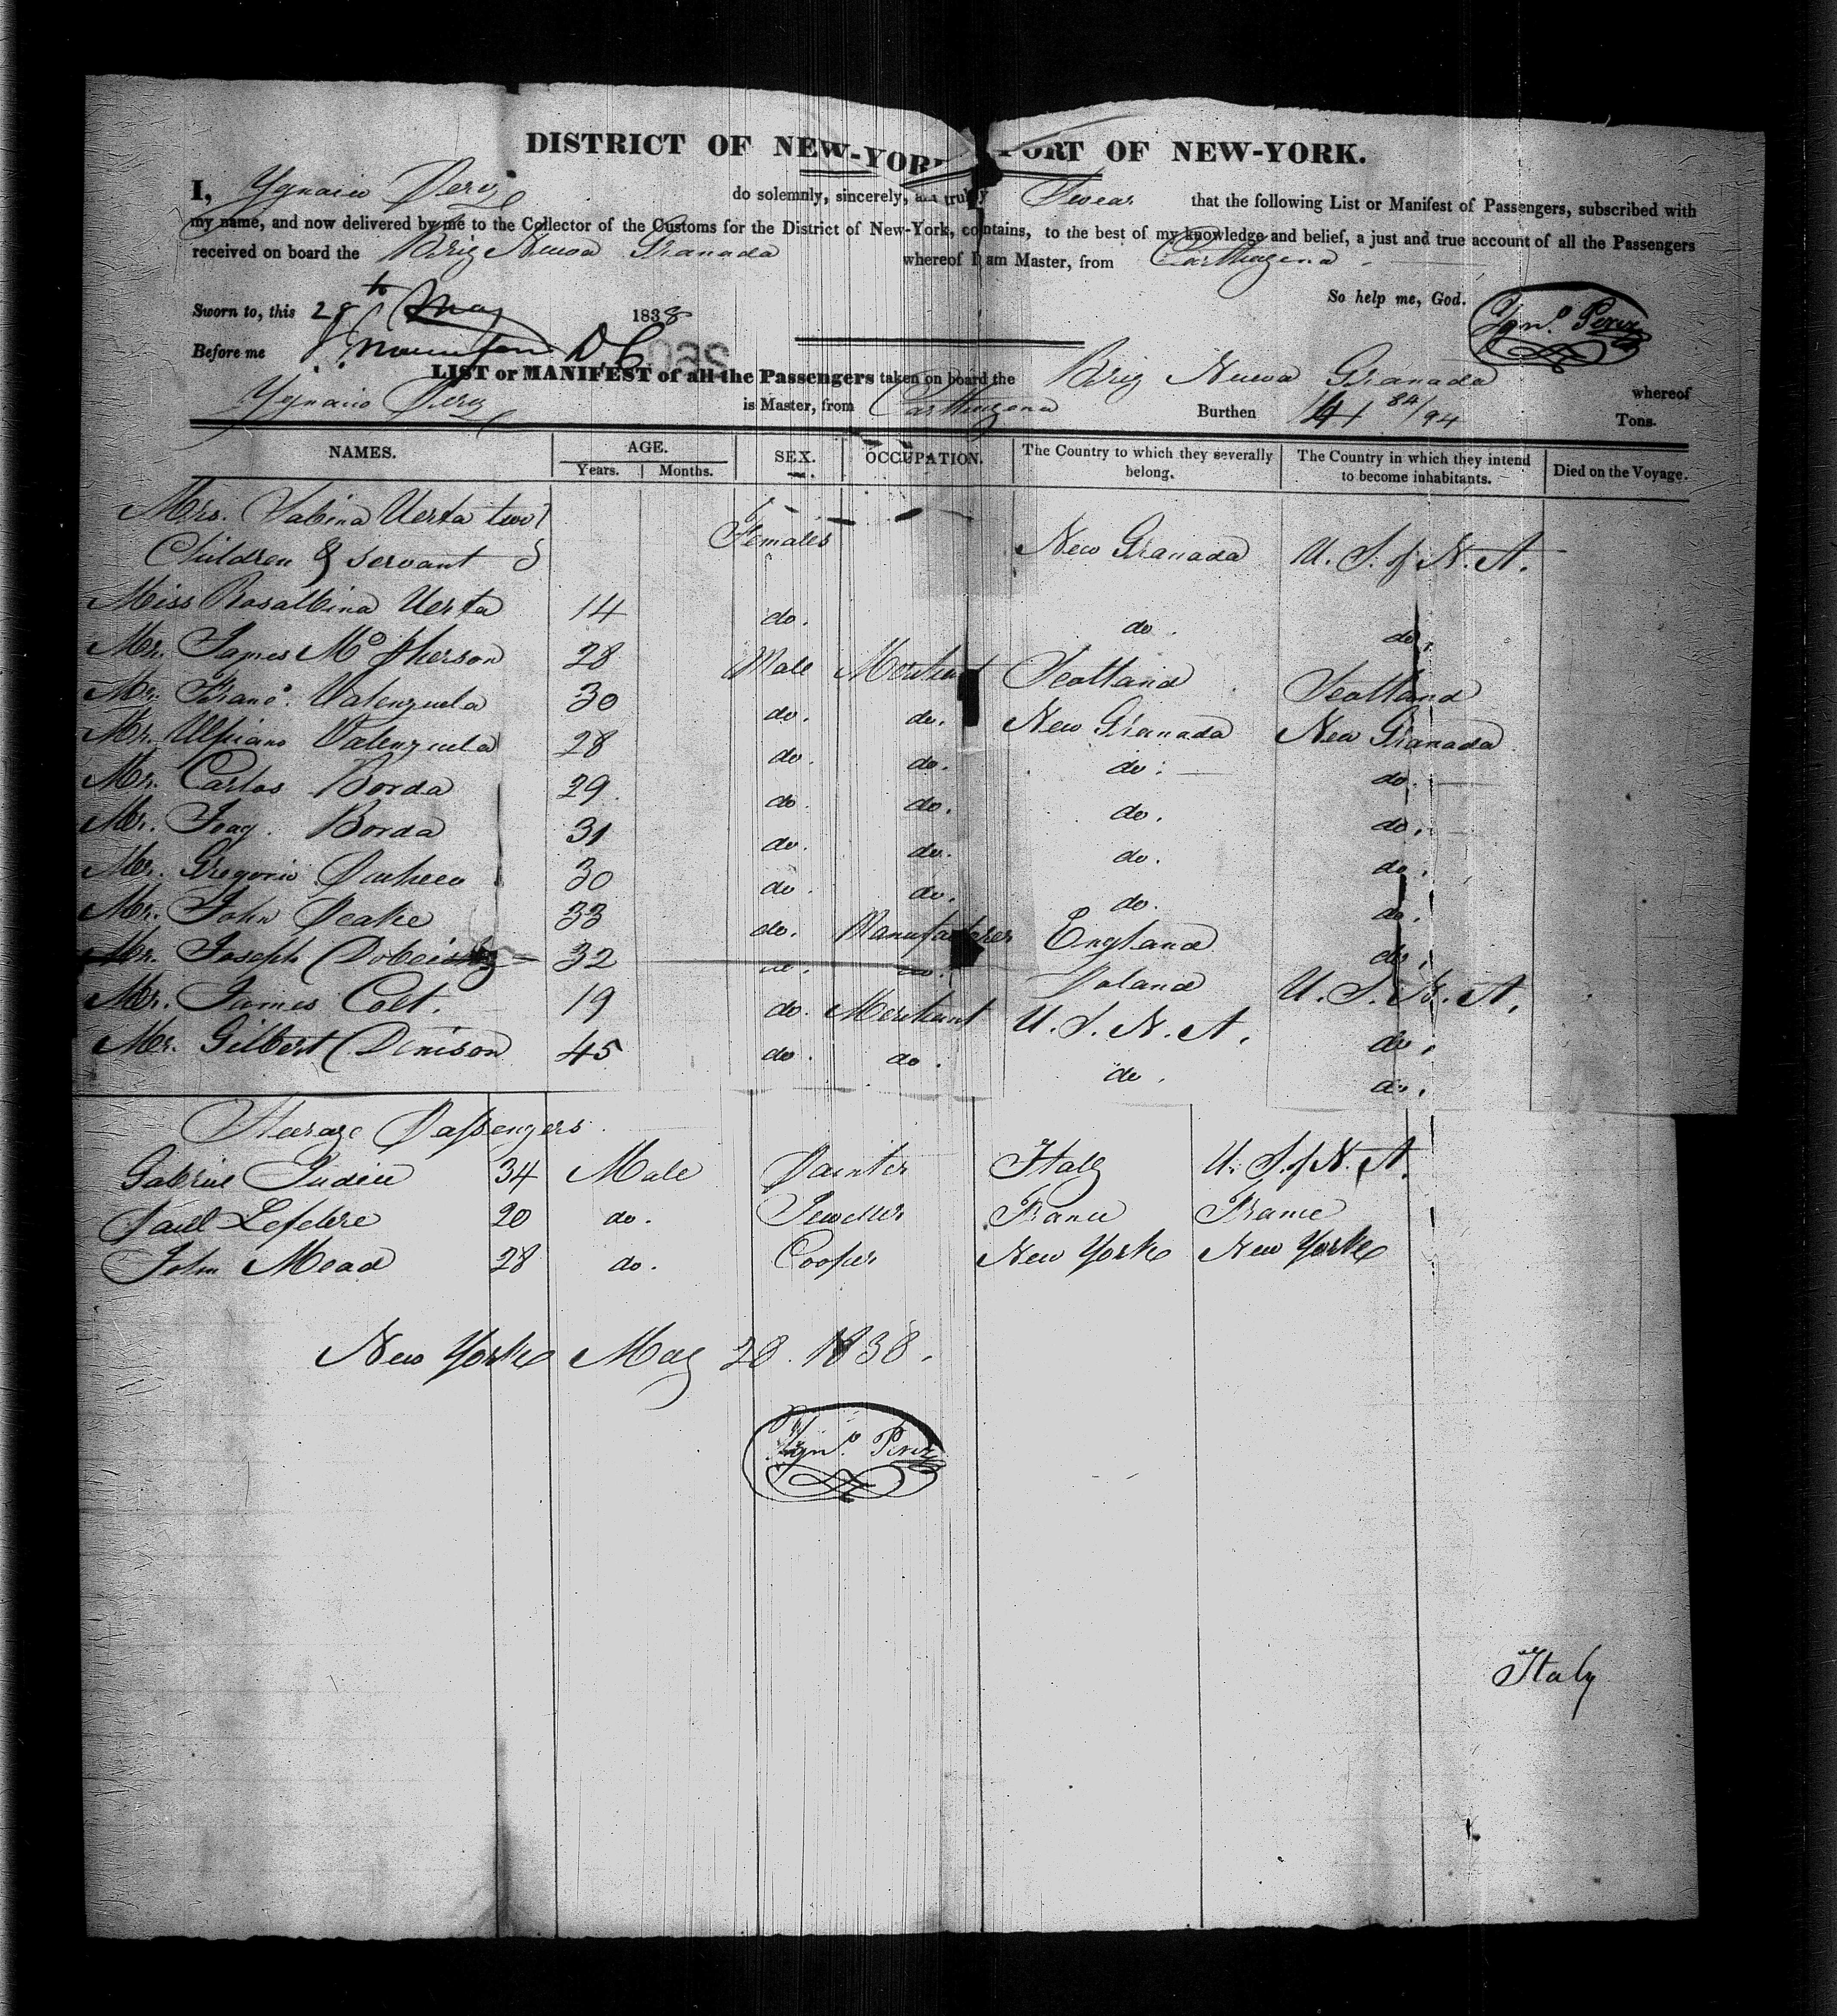 DISTRICT OF NEW-YORK PORT OF NEW-YORK.
I, Ygnacio Perez do solemnly, sincerely, and truly Swear that the following List or Manifest of Passengers, subscribed with
my name, and now delivered by me to the Collector of the Customs for the District of New-York, contains, to the best of my knowledge and belief, a just and true account of all the Passengers
received on board the Brig Nueva Granada whereof I am Master, from Carthagena
So help me, God.
Sworn to, this 28th May 1838 Ygno. Perez
Before me D. C.
LIST or MANIFEST of all the Passengers taken on board the Brig Nueva Granada whereof
Ygnacio Perez is Master, from Carthagena Burthen 141 84/94 Tons.
NAMES. AGE. SEX. OCCUPATION. The Country to which they severally belong. The Country in which they intend to become inhabitants. Died on the Voyage.
Years. Months.
Mrs. Sabina Uerta two
Children & servant Females New Granada U. S. of N. A.
Miss Rosalbina Uerta 14 do. do. do.
Mr. James McPherson 28 Male Merchant Scotland Scotland
Mr. Franco. Valenzuela 30 do. do. New Granada New Granada
Mr. Ulpiano Valenzuela 28 do. do. do. do.
Mr. Carlos Borda 29 do. do. do. do.
Mr. Joaq. Borda 31 do. do. do. do.
Mr. Gregorio Pacheco 30 do. do. do. do.
Mr. John Peake 33 do. Manufacturer England do.
Mr. Joseph 32 do. do. Poland U. S. N. A.
Mr. James Colt. 19 do. Merchant U. S. N. A. do.
Mr. Gilbert Denison 45 do. do. do. do.
Steerage Passengers
Gabriel 34 Male Painter Italy U. S. of N. A.
Paul Lefebre 20 do. Jeweller France France
John Mead 28 do. Cooper New York New York
New York May 28. 1838.
Ygno. Perez
Italy